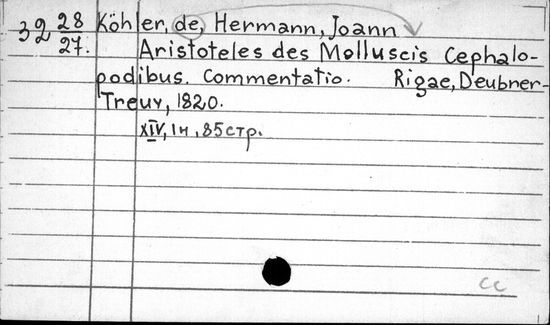 32 28/27. Köhler, de, Hermann, Joann
Aristoteles des Molluscis Cephalo-
podibus. Commentatio. Rigae, Deubner-
Treuy, 1820.
XIV, 1н, 85стр.
cc